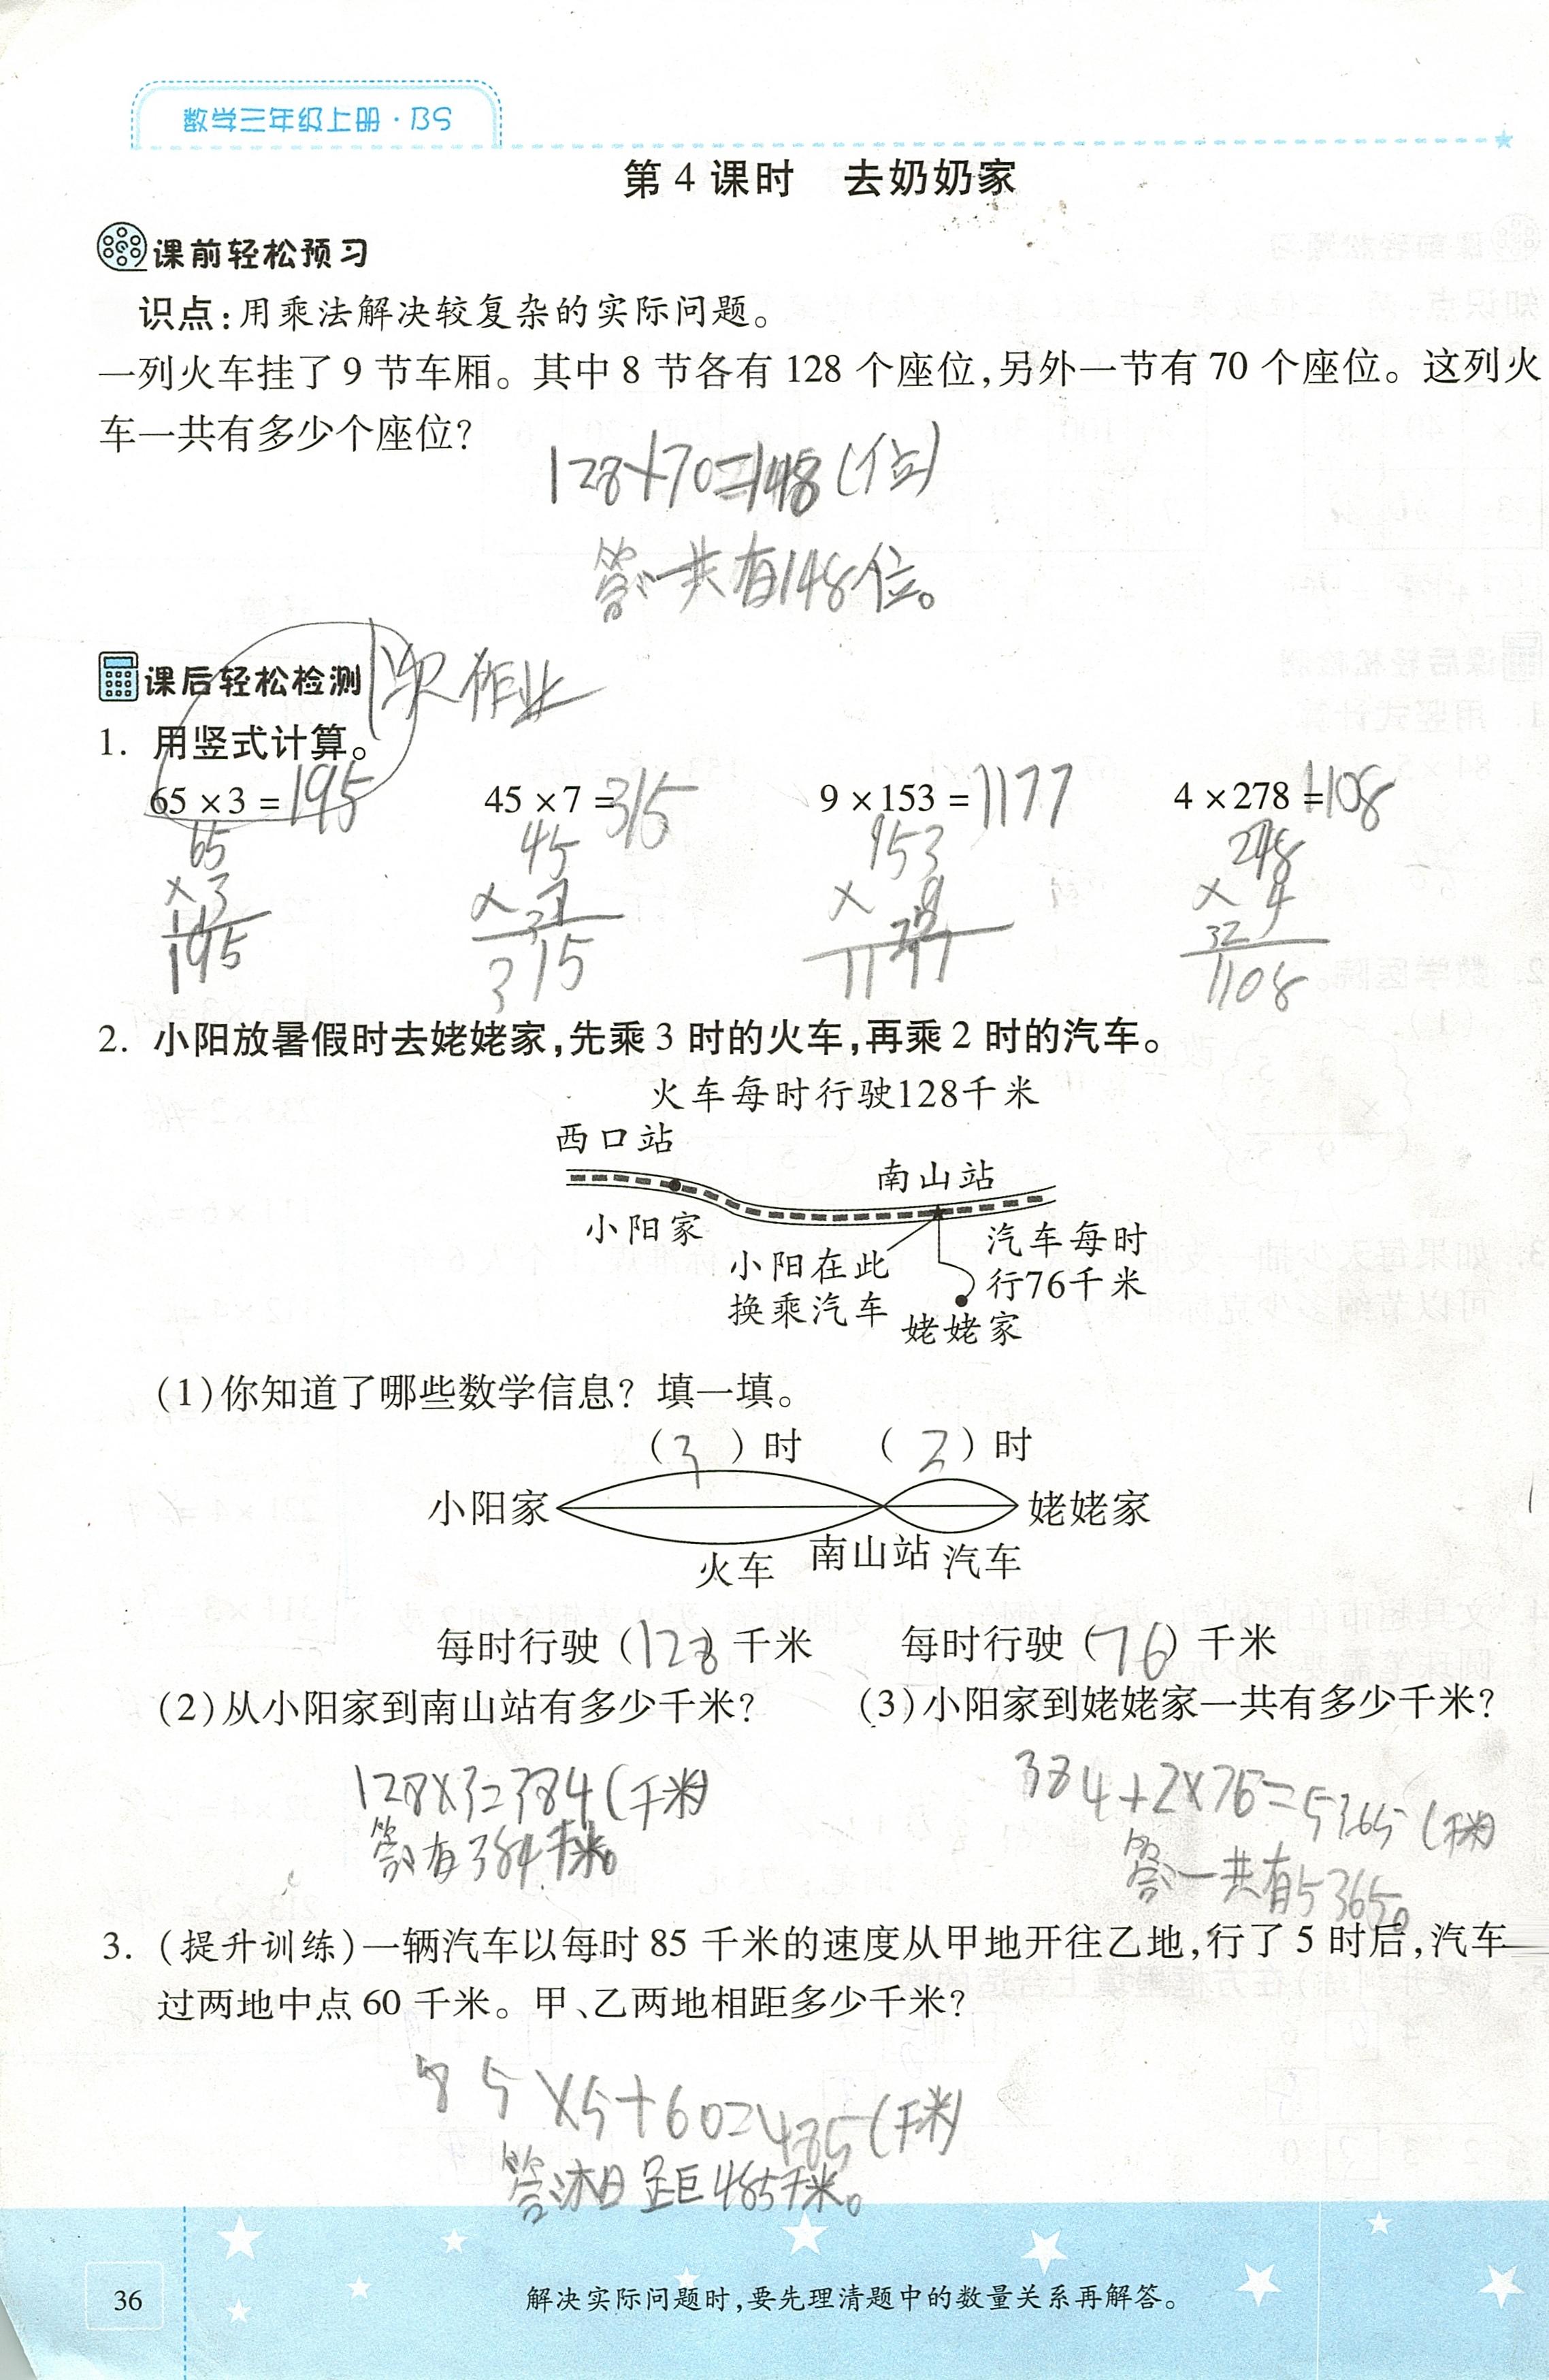 数学三年级上册·BS
第4课时 去奶奶家
课前轻松预习
识点:用乘法解决较复杂的实际问题。
一列火车挂了9节车厢。其中8节各有128个座位,另外一节有70个座位。这列火
车一共有多少个座位?
128+70=148(位)
答:一共有148位。
课后轻松检测
次作业
1. 用竖式计算。
65×3=195 45×7=315 9×153=1177 4×278=1108
65 45 153
×3 ×7 × 9 × 4
195 315 1177 1108
2. 小阳放暑假时去姥姥家,先乘3时的火车,再乘2时的汽车。
火车每时行驶128千米
西口站
南山站
小阳家
汽车每时
小阳在此
行76千米
换乘汽车
姥姥家
(1)你知道了哪些数学信息?填一填。
(3)时 (2)时
小阳家 姥姥家
火车 南山站 汽车
每时行驶(128)千米 每时行驶(76)千米
(2)从小阳家到南山站有多少千米? (3)小阳家到姥姥家一共有多少千米?
128×3=384(千米) 384+2×76=5365(千米)
答:有384千米。 答:一共有5365。
3. (提升训练)一辆汽车以每时85千米的速度从甲地开往乙地,行了5时后,汽车
过两地中点60千米。甲、乙两地相距多少千米?
85×5+60=485(千米)
距485千米。
36
解决实际问题时,要先理清题中的数量关系再解答。